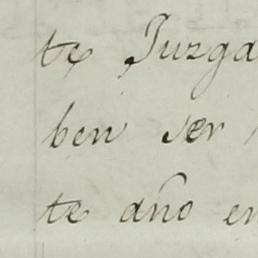 te Juzga
ben ser
te año en